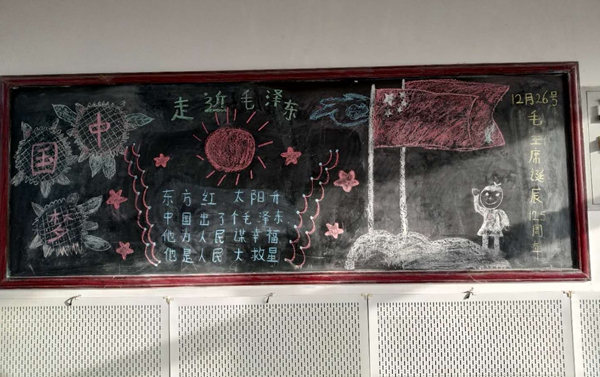 中
国
梦
走近毛泽东
东方红 太阳升
中国出了个毛泽东
他为人民谋幸福
他是人民大救星
12月26号
毛主席诞辰周年